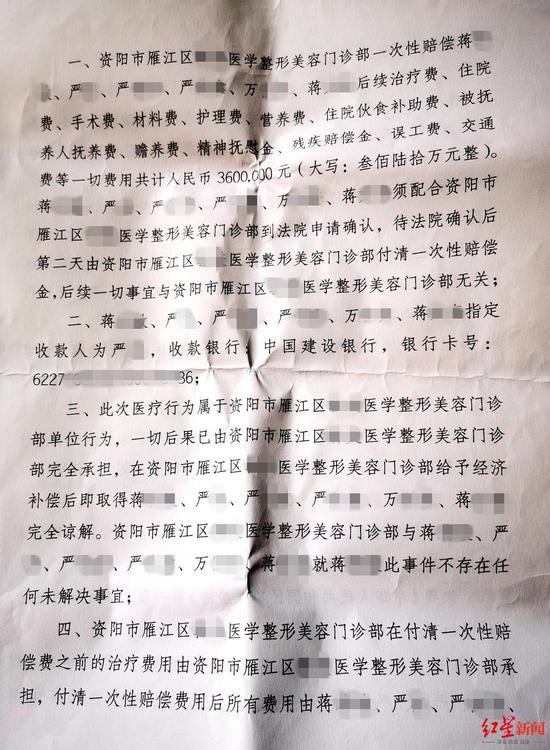 一、资阳市雁江区 医学整形美容门诊部一次性赔偿蒋
、严 、严 、严 、万 、蒋 后续治疗费、住院
费、手术费、材料费、护理费、营养费、住院伙食补助费、被抚
养人抚养费、赡养费、精神抚慰金、残疾赔偿金、误工费、交通
费等一切费用共计人民币 3600,000 元（大写：叁佰陆拾万元整）。
蒋 、严 、严 、严 、万 、蒋 须配合资阳市
雁江区 医学整形美容门诊部到法院申请确认，待法院确认后
第二天由资阳市雁江区 医学整形美容门诊部付清一次性赔偿
金，后续一切事宜与资阳市雁江区 医学整形美容门诊部无关；
二、蒋 、严 、严 、严 、万 、蒋 指定
收款人为严 ，收款银行：中国建设银行，银行卡号：
6227 36；
三、此次医疗行为属于资阳市雁江区 医学整形美容门诊
部单位行为，一切后果已由资阳市雁江区 医学整形美容门诊
部完全承担，在资阳市雁江区 医学整形美容门诊部给予经济
补偿后即取得蒋 、严 、严 、严 、万 、蒋
完全谅解。资阳市雁江区 医学整形美容门诊部与蒋 、严
、严 、严 、万 、蒋 就蒋 此事件不存在任
何未解决事宜；
四、资阳市雁江区 医学整形美容门诊部在付清一次性赔
偿费之前的治疗费用由资阳市雁江区 医学整形美容门诊部承
担，付清一次性赔偿费用后所有费用由蒋 、严 、严 、
红星新闻